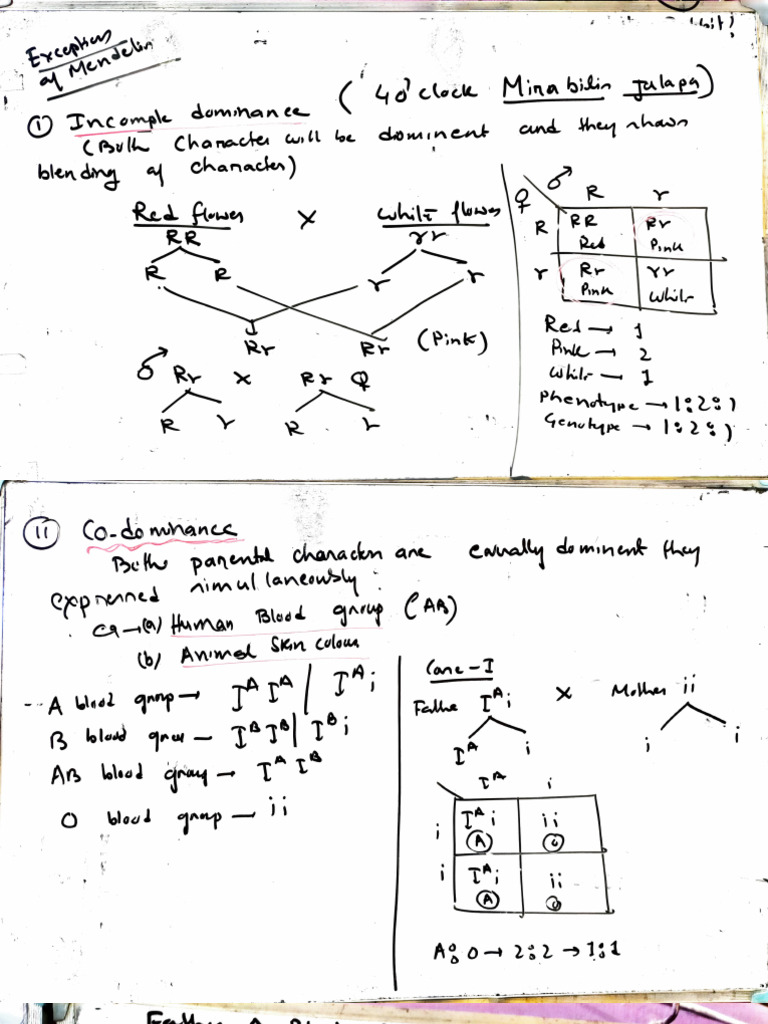 Exceptions
of Mendelin
① Incomple dominance ( '4 0' clock Mirabilin Jalapa)
(Both Character will be dominent and they shows
blending of character)
Red flower × White flower
RR rr
R R r r
Rr Rr (Pink)
♂ Rr × Rr ♀
R r R r
♀ ♂ R r
R RR Rr
Red Pink
r Rr rr
Pink White
Red → 1
Pink → 2
White → 1
Phenotype → 1:2:1
Genotype → 1:2:1
⑪ Co-dominance
Both parental character are equally dominent they
expressed simultaneously.
eg → (a) Human Blood group (AB)
(b) Animal Skin colour
A blood group → Iᴬ Iᴬ | Iᴬ i
B blood group — Iᴮ Iᴮ | Iᴮ i
AB blood group → Iᴬ Iᴮ
O blood group — ii
Case - I
Father Iᴬ i × Mother ii
Iᴬ i i i
Iᴬ i
i Iᴬ i ii
A O
i Iᴬ i ii
A O
A:O → 2:2 → 1:1